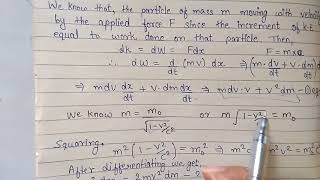 We know that, the particle of mass m moving with veloci
by the applied force F since the increment of k.E
equal to work done on that particle. Then,
dk = dW = Fdx F = m×a
∴ dW = d/dt (mv) dx ⇒ (m·dv/dt + v·dm/dt)
⇒ mdv dx/dt + v·dm dx/dt ⇒ mdv·v + v²dm —①
We know m = m₀/√(1-v²/c²) or m√(1-v²/c²) = m₀
Squaring. m²(1-v²/c²) = m₀² ⇒ m²c² - m²v² = m₀²c²
After differentiating we get,